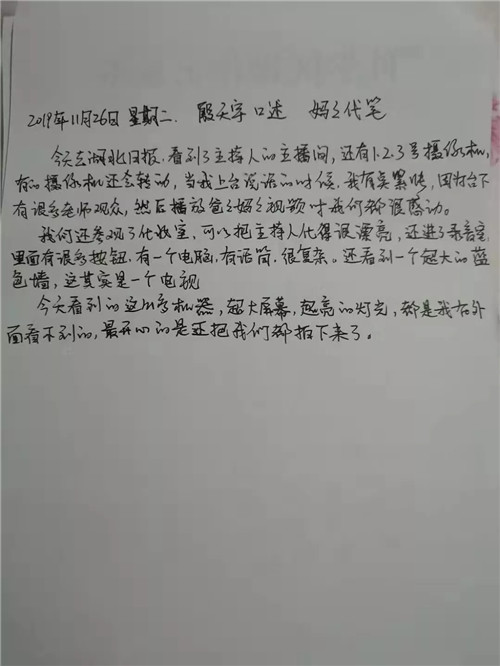 2019年11月26日 星期二. 殷天宇 口述 妈妈代笔
今天去湖北日报,看到了主持人的主播间,还有1.2.3号摄像机,
有的摄像机还会转动,当我上台说话的时候,我有点累,因为台下
有很多老师观众,然后播放爸爸妈妈视频时我们都很感动。
我们还参观了化妆室,可以把主持人化得很漂亮,还进了录音室,
里面有很多按钮,有一个电脑,有话筒,很复杂。还看到一个超大的蓝
色墙,这其实是一个电视
今天看到的这么多机器,超大屏幕,超亮的灯光,都是我在外
面看不到的,最开心的是还把我们都拍下来了。